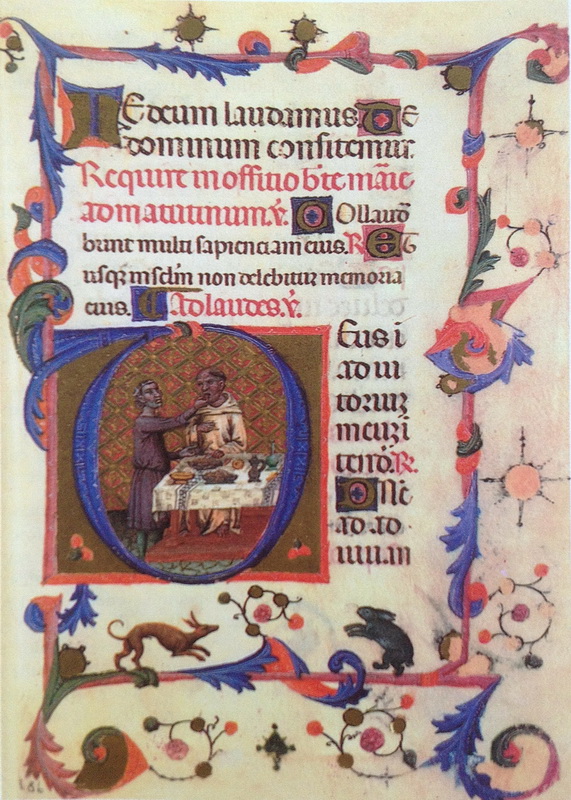 TEdeum laudamus. TE
dominum confitemur.
Require in offitio bt̄e marie
ad matutinum. v̄. Collaud
bunt multi sapienciam eius. R Et
usqz in sclm̄ non delebitur memoria
eius. Ad laudes. v̄.
DEus i
ad iu
toriuz
meuz i
tende. R.
Dn̄e
ad ad
iuuan